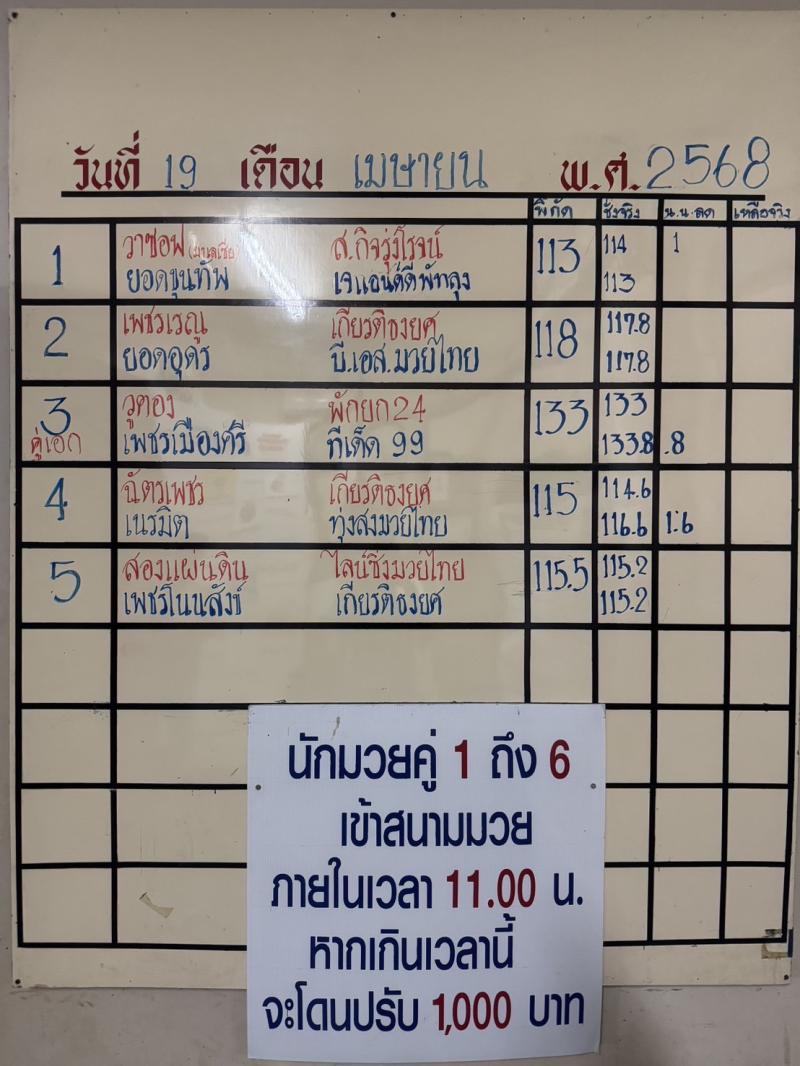 วันที่ 19 เดือน เมษายน พ.ศ. 2568
พิกัด ชั่งจริง น.น.ลด เหลือจริง
1 วาซอฟ (มาเลเซีย) ส.กิจรุ่งโรจน์ 113 114 1
ยอดขุนทัพ เจแอนด์ดีพัทลุง 113
2 เพชรเรณู เกียรติธงยศ 118 117.8
ยอดอุดร บี.เอส.มวยไทย 117.8
3 วูตอง พักยก24 133 133
คู่เอก เพชรเมืองศรี ทีเด็ด 99 133.8 .8
4 ฉัตรเพชร เกียรติธงยศ 115 114.6
เนรมิต ทุ่งสงมวยไทย 116.6 1.6
5 สองแผ่นดิน ไลน์ซิ่งมวยไทย 115.5 115.2
เพชรโนนสังข์ เกียรติธงยศ 115.2
นักมวยคู่ 1 ถึง 6
เข้าสนามมวย
ภายในเวลา 11.00 น.
หากเกินเวลานี้
จะโดนปรับ 1,000 บาท